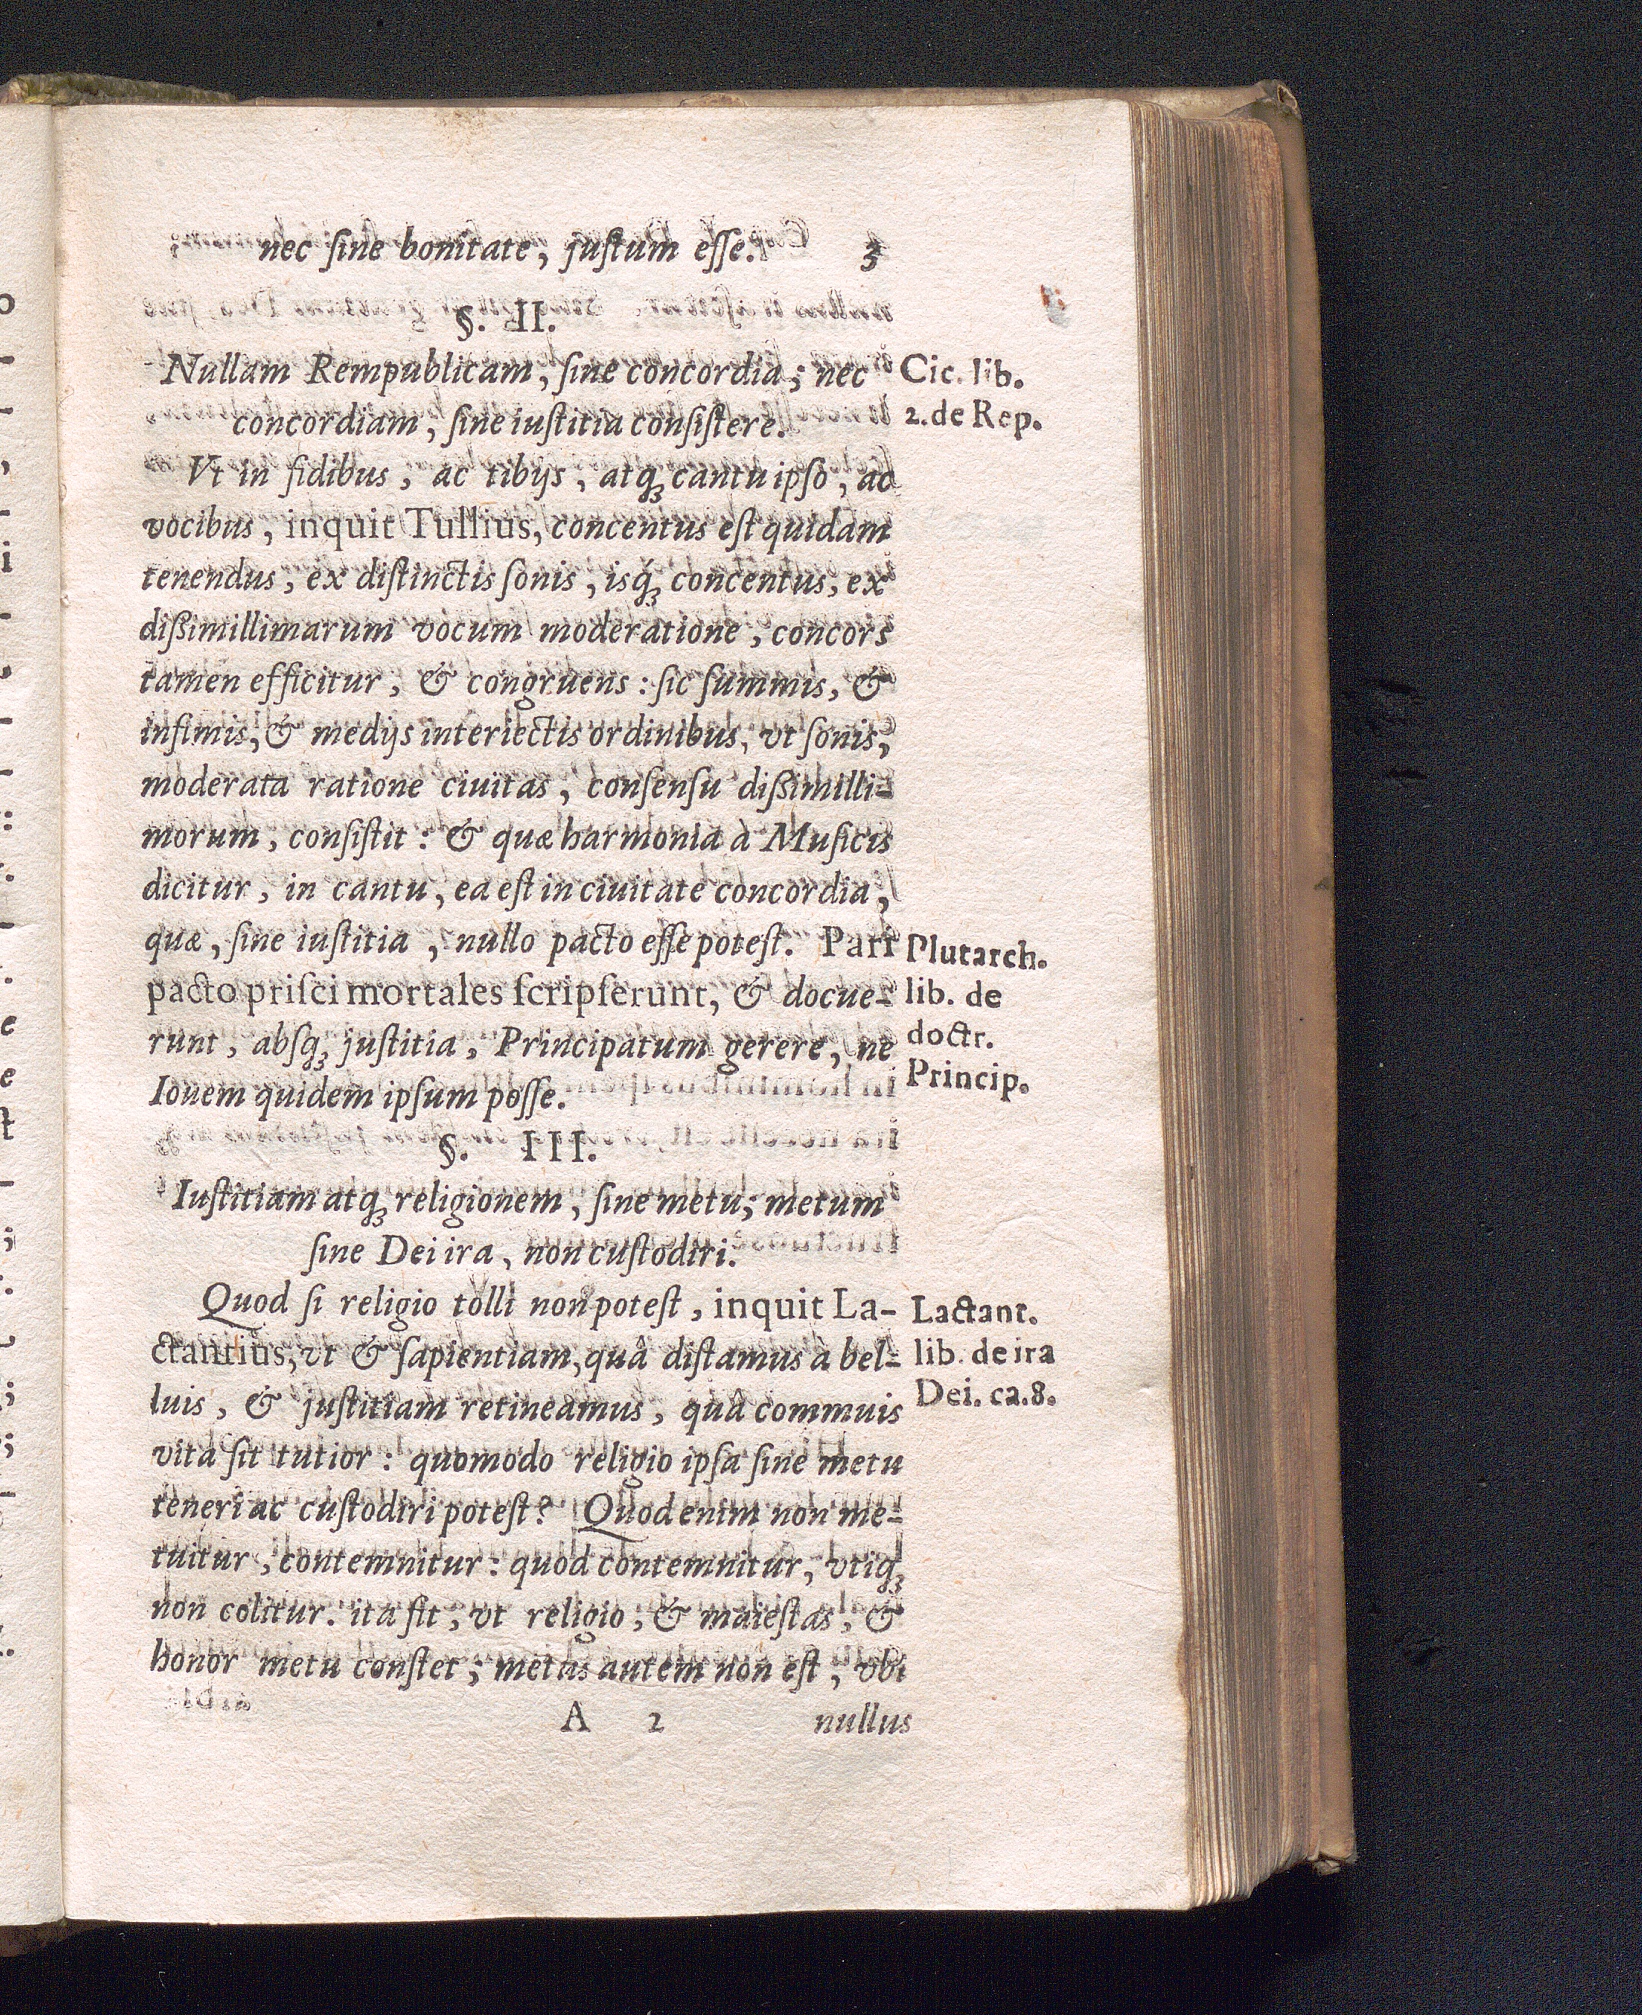 nec ſine bonitate, juſtum eſſe. 3
§. II.
Nullam Rempublicam, ſine concordia; nec
concordiam, ſine iuſtitia conſiſtere.
Cic. lib.
2. de Rep.
Vt in fidibus, ac tibijs, atqꝫ cantu ipſo, ac
vocibus, inquit Tullius, concentus eſt quidam
tenendus, ex diſtinctis ſonis, isq́ꝫ concentus, ex
diſsimillimarum vocum moderatione, concors
tamen efficitur, & congruens: ſic ſummis, &
infimis, & medijs interiectis ordinibus, vt ſonis,
moderata ratione ciuitas, conſenſu diſsimilli-
morum, conſiſtit: & quæ harmonia à Muſicis
dicitur, in cantu, ea eſt in ciuitate concordia,
quæ, ſine iuſtitia, nullo pacto eſſe poteſt. Pari
pacto priſci mortales ſcripſerunt, & docue-
runt, abſqꝫ juſtitia, Principatum gerere, ne
Iouem quidem ipſum poſſe.
Plutarch.
lib. de
doctr.
Princip.
§. III.
Iuſtitiam atqꝫ religionem, ſine metu; metum
ſine Dei ira, non cuſtodiri.
Quod ſi religio tolli non poteſt, inquit La-
ctantius, vt & ſapientiam, quâ diſtamus à bel-
luis, & juſtitiam retineamus, quâ commuis
vita ſit tutior: quomodo religio ipſa ſine metu
teneri ac cuſtodiri poteſt? Quod enim non me-
tuitur, contemnitur: quod contemnitur, vtiqꝫ
non colitur. ita fit, vt religio, & maieſtas, &
honor metu conſtet; metus autem non eſt, vbi
Lactant.
lib. de ira
Dei. ca. 8.
A 2 nullus